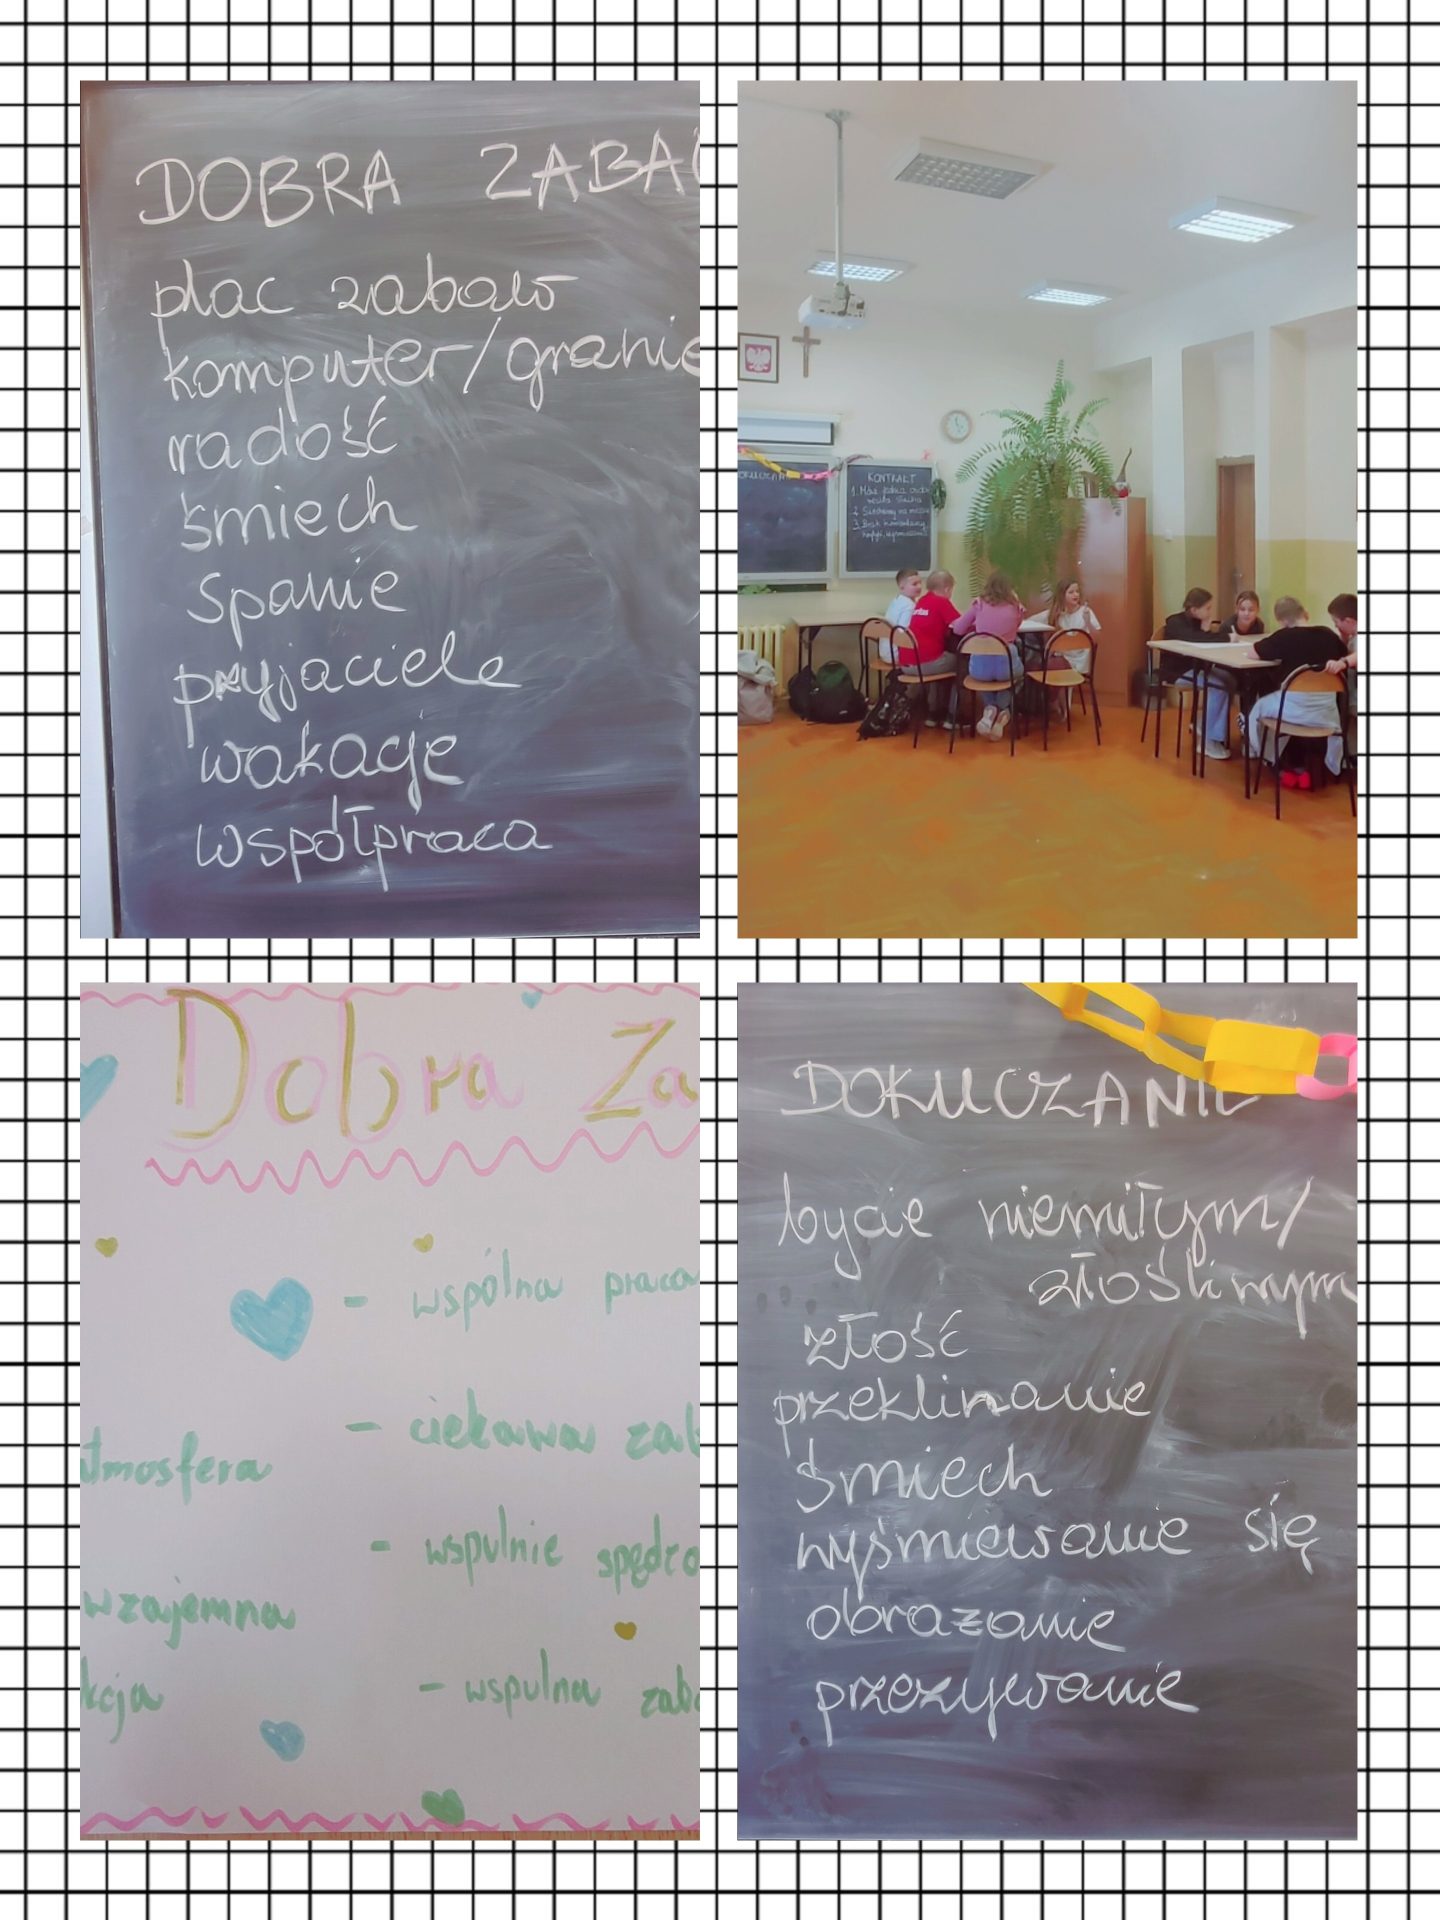 DOBRA ZABA
plac zabaw
komputer/granie
radość
śmiech
spanie
przyjaciele
wakacje
współpraca
KONTRAKT
1. Mówi jedna
reszta słucha
2. Siedzimy na
3. Brak komentarzy,
Dobra Za
- wspólna praca
- ciekawa zab
atmosfera
- wspulnie spędzo
wzajemna
kcja
- wspulna zaba
DOKUCZANIE
bycie niemiłym/
złośliwym
złość
przeklinanie
śmiech
wyśmiewanie się
obrażanie
przezywanie